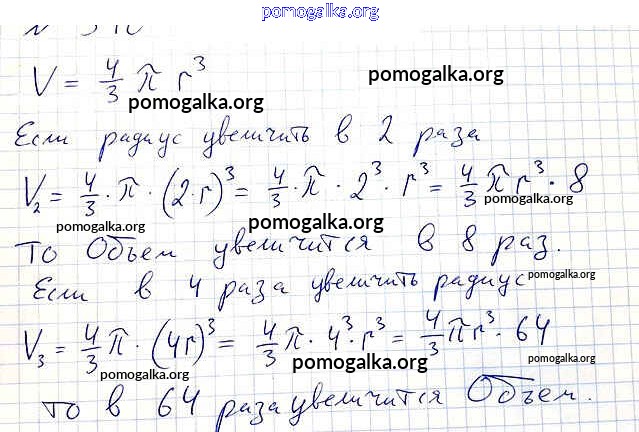 pomogalka.org
V = 4/3 π r³
pomogalka.org
pomogalka.org
Если радиус увеличить в 2 раза
V₂ = 4/3 · π · (2·r)³ = 4/3 · π · 2³ · r³ = 4/3 π r³ · 8
pomogalka.org
pomogalka.org
pomogalka.org
То Объем увеличится в 8 раз.
Если в 4 раза увеличить радиус
pomogalka.org
V₃ = 4/3 π · (4r)³ = 4/3 π · 4³ · r³ = 4/3 π r³ · 64
pomogalka.org
pomogalka.org
pomogalka.org
то в 64 раза увеличится Объем.